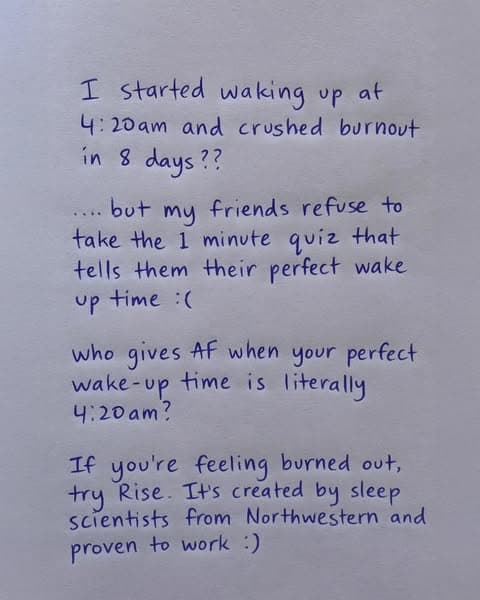 I started waking up at
4:20am and crushed burnout
in 8 days??
.... but my friends refuse to
take the 1 minute quiz that
tells them their perfect wake
up time :(
who gives AF when your perfect
wake-up time is literally
4:20am?
If you're feeling burned out,
try Rise. It's created by sleep
scientists from Northwestern and
proven to work :)